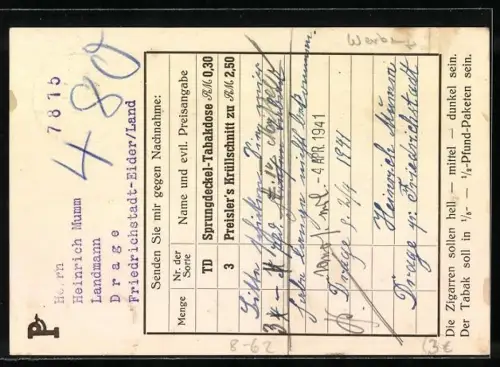 7 8 1 5
480
Herrn
Heinrich Mumm
Landmann
D r a g e
Friedrichstadt-Eider/Land
P
Senden Sie mir gegen Nachnahme:
Menge
Nr. der Sorte
Name und evtl. Preisangabe
TD Sprungdeckel-Tabakdose RM 0,30
3 Preisler's Krüllschnitt zu RM 2,50
Bitte schicken Sie mir
habe lange nicht bekommen.
- 4 APR 1941
Drage d. 2/4 1941
Heinrich Mumm
Drage p. Friedrichstadt
Die Zigarren sollen hell — mittel — dunkel sein.
Der Tabak soll in 1/8- — 1/2-Pfund-Paketen sein.
8-62
3€